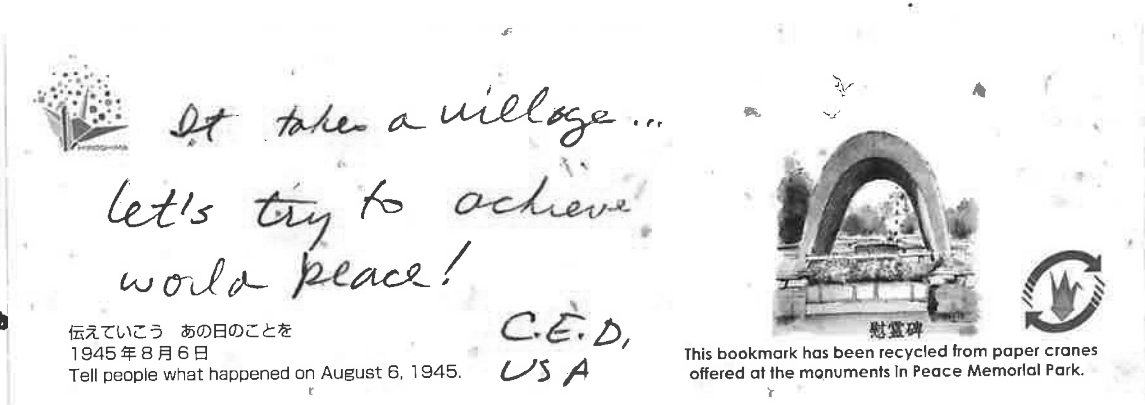 HIROSHIMA
It takes a village...
let's try to achieve
world peace!
C.E.D,
USA
伝えていこう あの日のことを
1945年8月6日
Tell people what happened on August 6, 1945.
慰霊碑
This bookmark has been recycled from paper cranes
offered at the monuments in Peace Memorial Park.